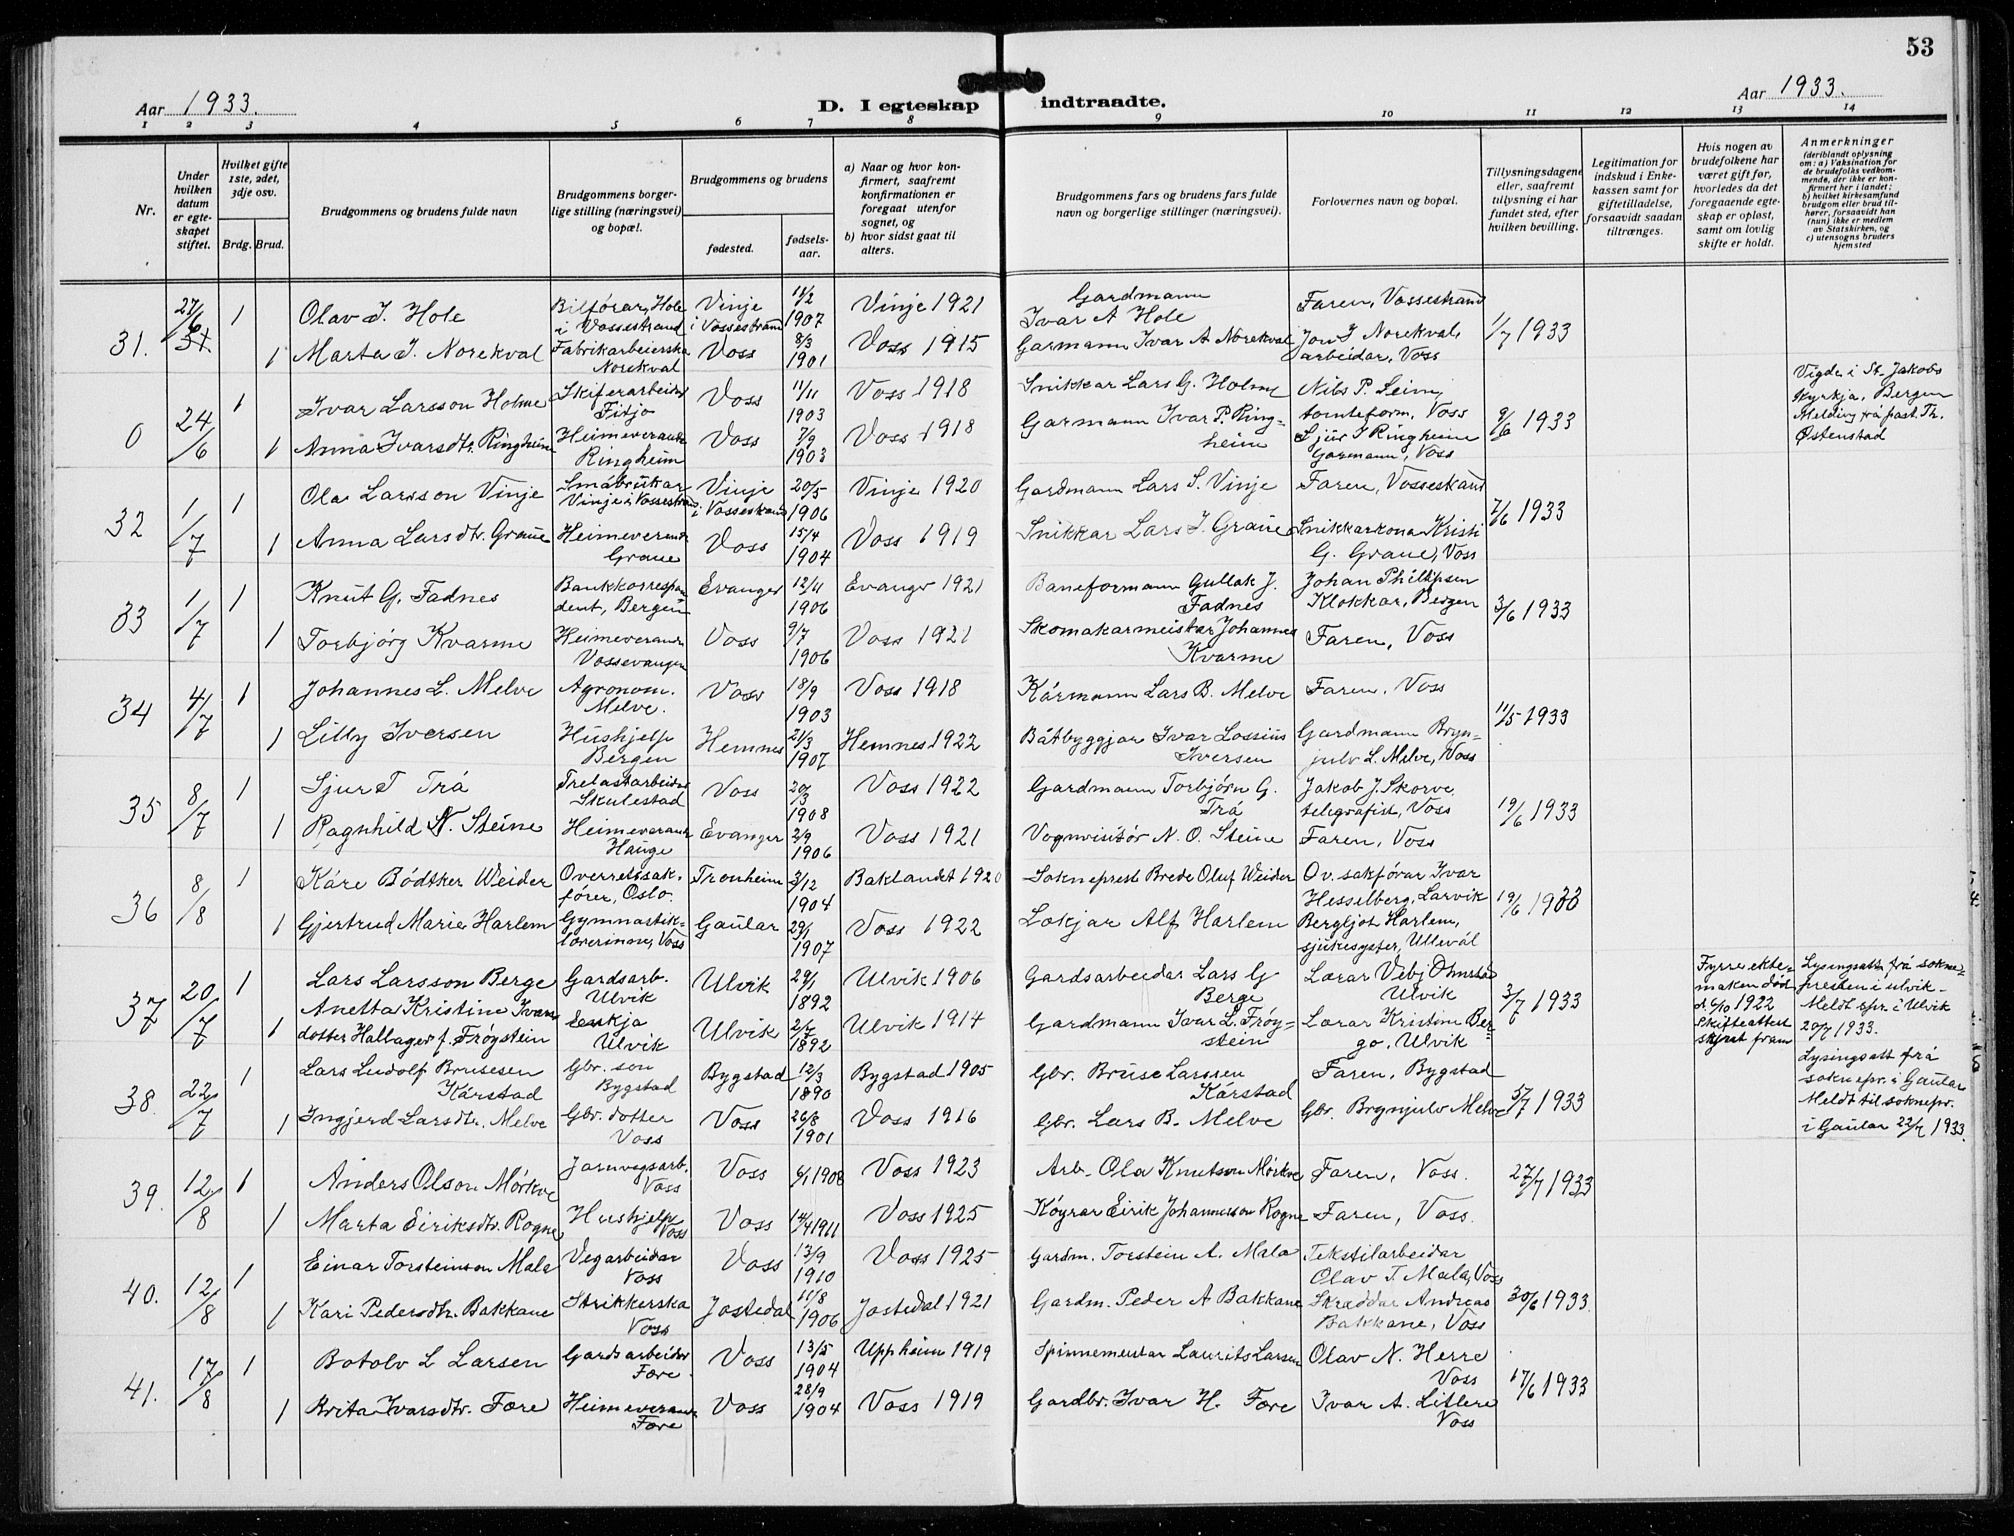 53
Aar 1933.
D. I egteskap indtraadte.
Aar 1933.
1 2 3 4 5 6 7 8 9 10 11 12 13 14
Nr.
Under hvilken datum er egteskapet stiftet.
Hvilket gifte 1ste, 2det, 3dje osv.
Brdg. Brud.
Brudgommens og brudens fulde navn
Brudgommens borgerlige stilling (næringsvei) og bopæl.
Brudgommens og brudens
fødested.
fødselsaar.
a) Naar og hvor konfirmert, saafremt konfirmationen er foregaat utenfor sognet, og
b) hvor sidst gaat til alters.
Brudgommens fars og brudens fars fulde navn og borgerlige stillinger (næringsvei).
Forlovernes navn og bopæl.
Tillysningsdagene eller, saafremt tillysning ei har fundet sted, efter hvilken bevilling.
Legitimation for indskud i Enkekassen samt for giftetilladelse, forsaavidt saadan tiltrænges.
Hvis nogen av brudefolkene har været gift før, hvorledes da det foregaaende egteskap er opløst, samt om lovlig skifte er holdt.
Anmerkninger
(deriblandt oplysning om: a) Vaksination for de brudefolks vedkommende, der ikke er konfirmert her i landet; b) hvilket kirkesamfund brudgom eller brud tilhører, forsaavidt han (hun) ikke er medlem av Statskirken, og c) utensogns bruders hjemsted
31. 27/6 1 Olav I. Hole Bilførar, Hole i Vossestrand Vinje i Vossestrand 11/2 1907 Vinje 1921 Gardmann Ivar A Hole Faren, Vossestrand 1/7 1933
1 Marta I. Norekval Fabrikarbeierska Norekval Voss 8/3 1901 Voss 1915 Garmann Ivar A Norekval Jon I Norekval, arbeidar, Voss
0 24/6 1 Ivar Larsson Holme Skiferarbeidar Fitjo Voss 11/11 1903 Voss 1918 Snikkar Lars G. Holme Nils P. Leim, tomteform, Voss 9/6 1933 Vigde i St. Jakobs Kyrkja, Bergen Melding frå past. Th. Østenstad
1 Anna Ivarsdtr. Ringheim Heimeverande Ringheim Voss 7/9 1903 Voss 1918 Garmann Ivar P. Ringheim Sjur I Ringheim Garmann, Voss
32 1/7 1 Ola Larsson Vinje Småbrukar Vinje i Vossestrand Vinje i Vossestrand 20/5 1906 Vinje 1920 Gardmann Lars S. Vinje Faren, Vossestrand 7/6 1933
1 Anna Larsdtr. Graue Heimeverande Graue Voss 15/4 1904 Voss 1919 Snikkar Lars I. Graue Snikkarkona Kristi G. Graue, Voss
33 1/7 1 Knut G. Fadnes Bankkorrespondent, Bergen Evanger 12/11 1906 Evanger 1921 Baneformann Gullak J. Fadnes Johan Philipsen Klokkar, Bergen 3/6 1933
1 Torbjørg Kvarme Heimeverande Vossevangen Voss 9/7 1906 Voss 1921 Skomakarmeistar Johannes Kvarme Faren, Voss
34 4/7 1 Johannes L. Melve Agronom. Melve. Voss 18/9 1903 Voss 1918 Kármann Lars B. Melve Faren, Voss 11/5 1933
1 Lilly Iversen Hushjelp Bergen Hemnes 21/3 1907 Hemnes 1922 Båtbyggjar Ivar Lossius Iversen Gardmann Brynjulv L. Melve, Voss
35 8/7 1 Sjur T Trå Trelastarbeidar Skulestad Voss 20/3 1908 Voss 1922 Gardmann Torbjørn G. Trå Jakob J. Skorve, telegrafist, Voss 19/6 1933
1 Ragnhild N. Steine Heimeverande Hauge Evanger 2/9 1906 Voss 1921 Vognvisitør N. O. Steine Faren, Voss
36 8/8 1 Kåre Bödtker Weider Overrettssakfører, Oslo. Tronheim 3/12 1904 Baklandet 1920 Sokneprest Brede Oluf Weider Ov. sakførar Ivar Hesselberg, Larvik 19/6 1933
1 Gjertrud Marie Harlem Gymnastiklærerinne, Voss Gaular 29/1 1907 Voss 1922 Lækjar Alf Harlem Bergljot Harlem, sjukesyster, Ullevål
37 20/7 1 Lars Larsson Berge Gardsarb. Ulvik Ulvik 29/1 1892 Ulvik 1906 Gardsarbeidar Lars G Berge Lærar Ulvik 3/7 1933 Fyrre ektemaken død d. 6/10 1922 Skifteattest fram Lysingsatt. frå soknepresten i Ulvik. Meldt spr. i Ulvik 20/7 1933.
1 Anetta Kristine Ivarsdotter Hallager f. Frøystein Enkja Ulvik Ulvik 2/6 1892 Ulvik 1914 Gardmann Ivar L. Frøystein Lærar Kristine Bergo, Ulvik
38. 22/7 1 Lars Ludolf Brusesen Kårstad Gbr. son Bygstad Bygstad 12/3 1890 Bygstad 1905 Gbr. Bruse Larssen Kårstad Faren, Bygstad 5/7 1933 Lysingsatt frå soknepr. i Gaular Meldt til soknepr. i Gaular 22/7 1933.
1 Ingjerd Larsdtr. Melve Gbr. dotter Voss Voss 26/8 1901 Voss 1916 Gbr. Lars B. Melve Gbr. Brynjulv Melve
39. 12/8 1 Anders Olson Mørkve Jarnvegsarb. Voss Voss 6/1 1908 Voss 1923 Arb. Ola Knutson Mørkve Faren, Voss. 27/7 1933
1 Marta Eiriksdtr. Rogne Hushjelp Voss Voss 14/4 1911 Voss 1925 Køyrar Eirik Johannesson Rogne Faren, Voss.
40. 12/8 1 Einar Torsteinson Mala Vegarbeidar Voss Voss 13/9 1910 Voss 1925 Gardm. Torstein A. Mala Tekstilarbeidar Olav T. Mala, Voss 30/6 1933.
1 Kari Pedersdtr. Bakkane Strikkerska Voss Jostedal 11/8 1906 Jostedal 1921 Gardm. Peder A Bakkane Skræddar Andreas Bakkane, Voss
41. 17/8 1 Botolv L Larsen Gardsarbeidar Føre. Voss 13/5 1904 Uppheim 1919 Spinnemeistar Laurits Larsen Olav N. Herre Voss 17/6 1933
1 Brita Ivarsdtr. Føre Heimeverande Føre Voss 28/9 1904 Voss 1919 Gardbr. Ivar H. Føre Ivar A. Litlere Voss